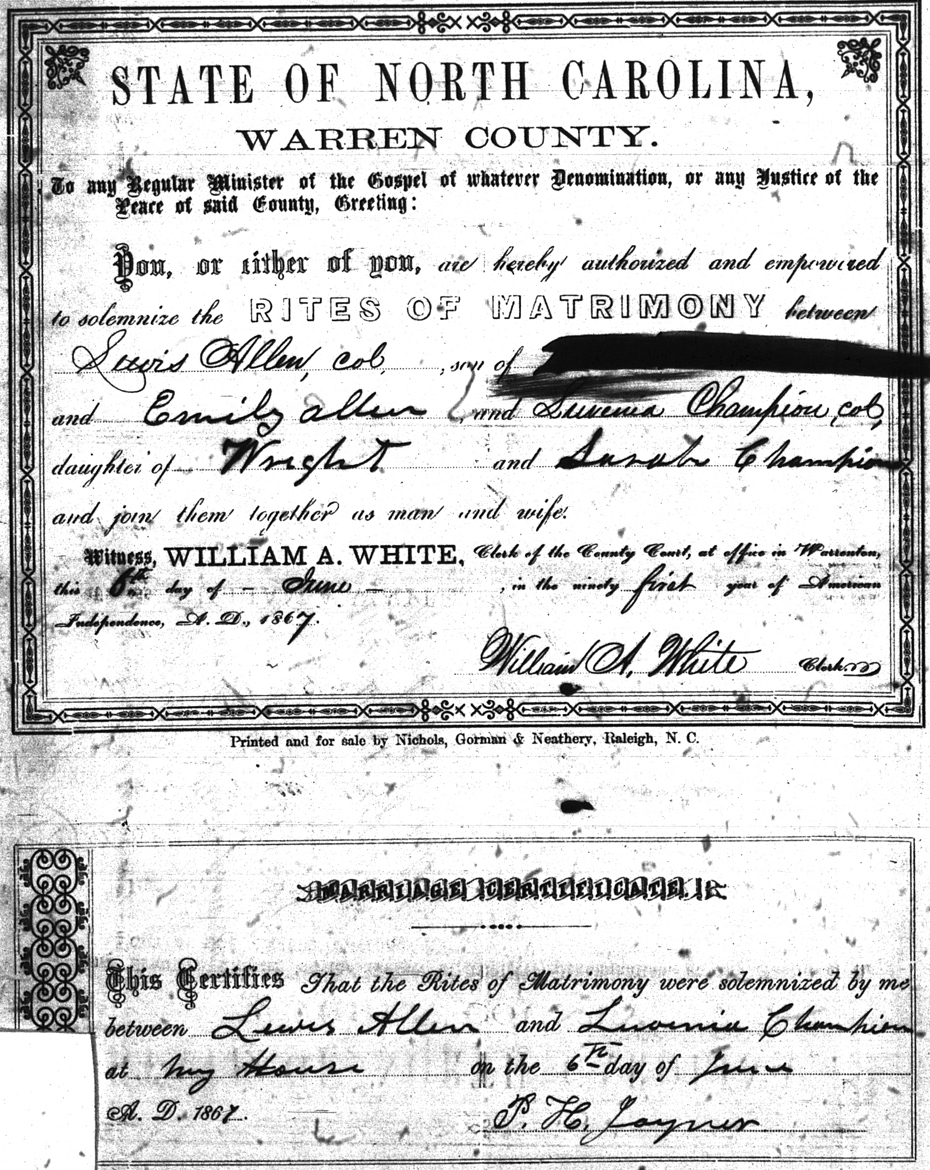 STATE OF NORTH CAROLINA,
WARREN COUNTY.
To any Regular Minister of the Gospel of whatever Denomination, or any Justice of the
Peace of said County, Greeting:
You, or either of you, are hereby authorized and empowered
to solemnize the RITES OF MATRIMONY between
Lewis Allen, col, son of
and Emily Allen and Luvenia Champion, col,
daughter of Wright and Sarah Champion
and join them together as man and wife.
Witness, WILLIAM A. WHITE, Clerk of the County Court, at office in Warrenton,
this 6th day of - June - , in the ninety first year of American
Independence, A. D., 1867.
William A. White Clerk
Printed and for sale by Nichols, Gorman & Neathery, Raleigh, N. C.
MARRIAGE CERTIFICATE.
This Certifies That the Rites of Matrimony were solemnized by me
between Lewis Allen and Luvenia Champion
at my House on the 6th day of June
A. D. 1867. P. H. Joyner